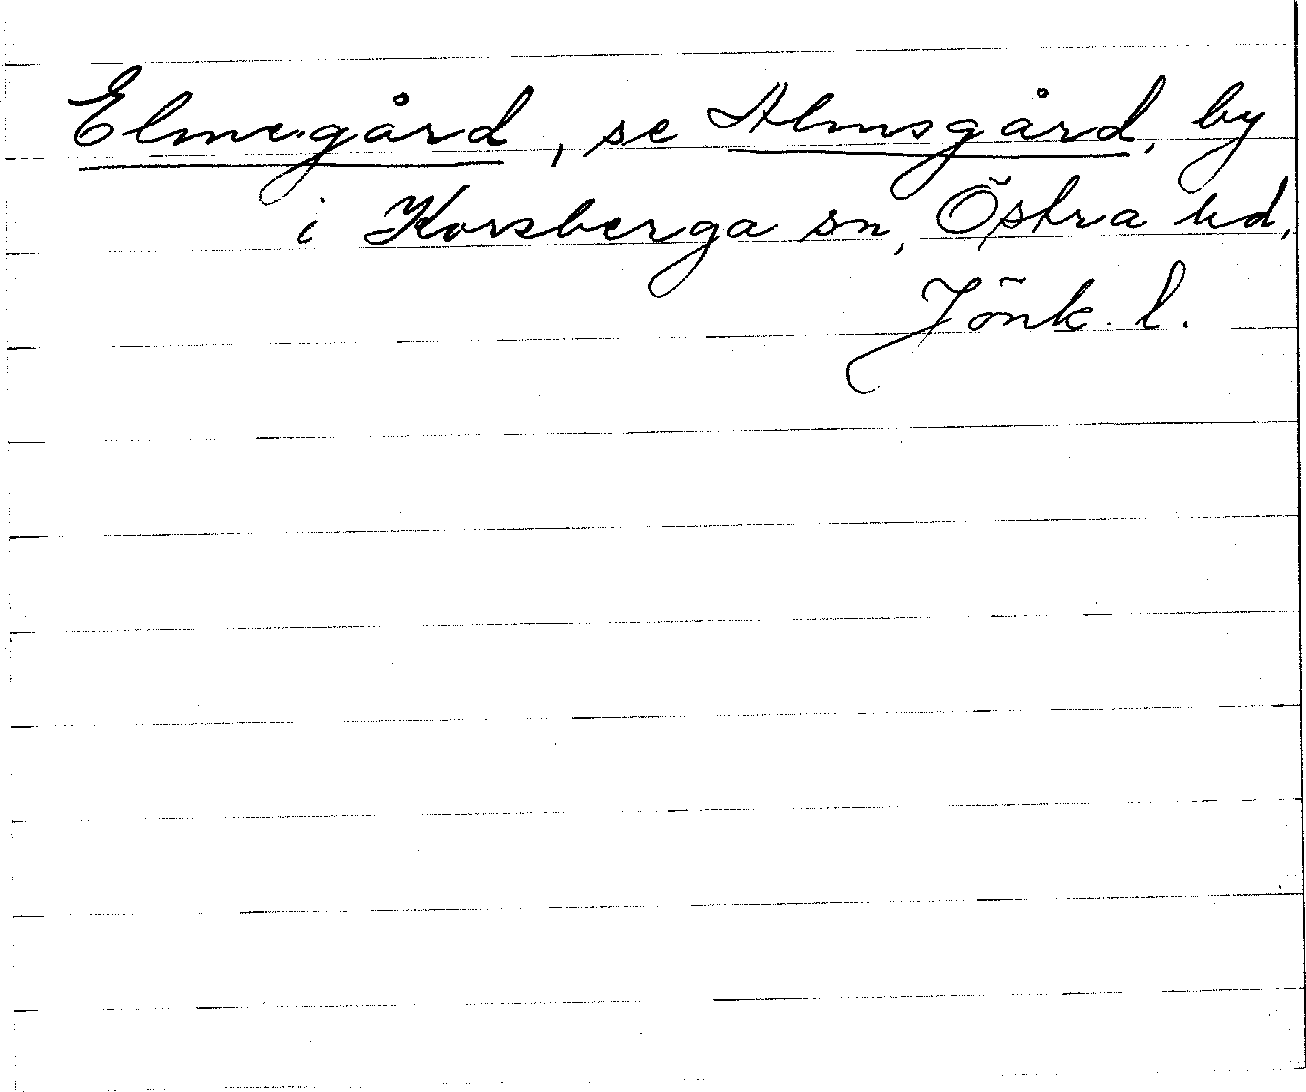 Elmegård, se Almsgård, by
i Korsberga sn, Östra hd,
Jönk. l.